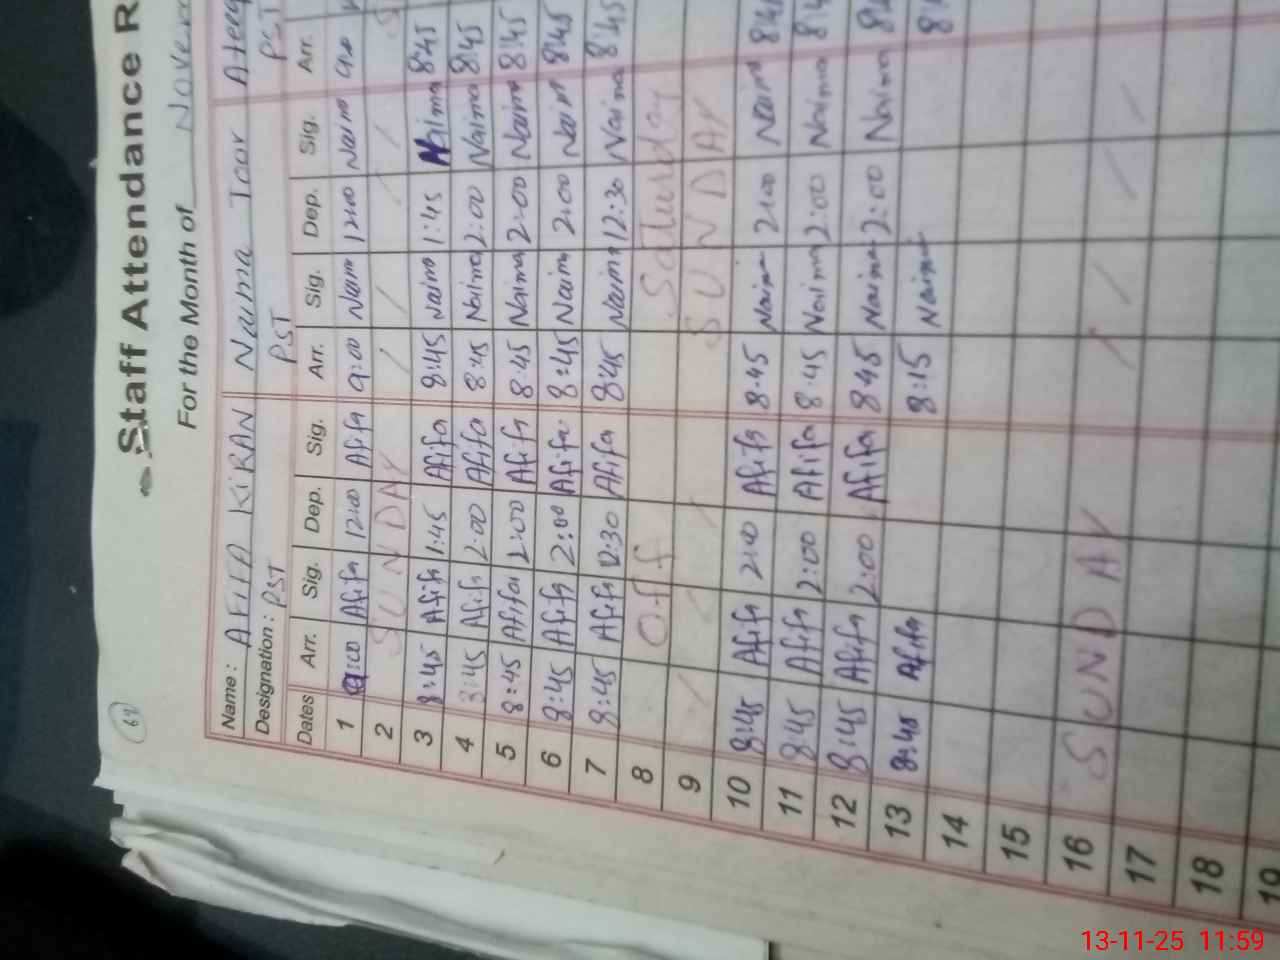 Staff Attendance R
For the Month of
62
Name: AFIFA KiRAN Naima Toor
Designation: PST PST PST
Dates Arr. Sig. Dep. Sig. Arr. Sig. Dep. Sig. Arr.
1 9:00 Afifa 12:00 Afifa 9:00 Naima 12:00 Naima 9:00
2 SUNDAY
3 8:45 Afifa 1:45 Afifa 8:45 Naima 1:45 Naima 8:45
4 8:45 Afifa 2:00 Afifa 8:45 Naima 2:00 Naima 8:45
5 8:45 Afifa 2:00 Afifa 8:45 Naima 2:00 Naima 8:45
6 8:45 Afifa 2:00 Afifa 8:45 Naima 2:00 Naima 8:45
7 8:45 Afifa 12:30 Afifa 8:45 Naima 12:30 Naima 8:45
8 Off Saturday
9 SUNDAY
10 8:45 Afifa 2:00 Afifa 8:45 Naima 2:00 Naima
11 8:45 Afifa 2:00 Afifa 8:45 Naima 2:00 Naima
12 8:45 Afifa 2:00 Afifa 8:45 Naima 2:00 Naima
13 8:45 Afifa 8:15 Naima
14
15
16 SUNDAY
17
18
19
13-11-25 11:59